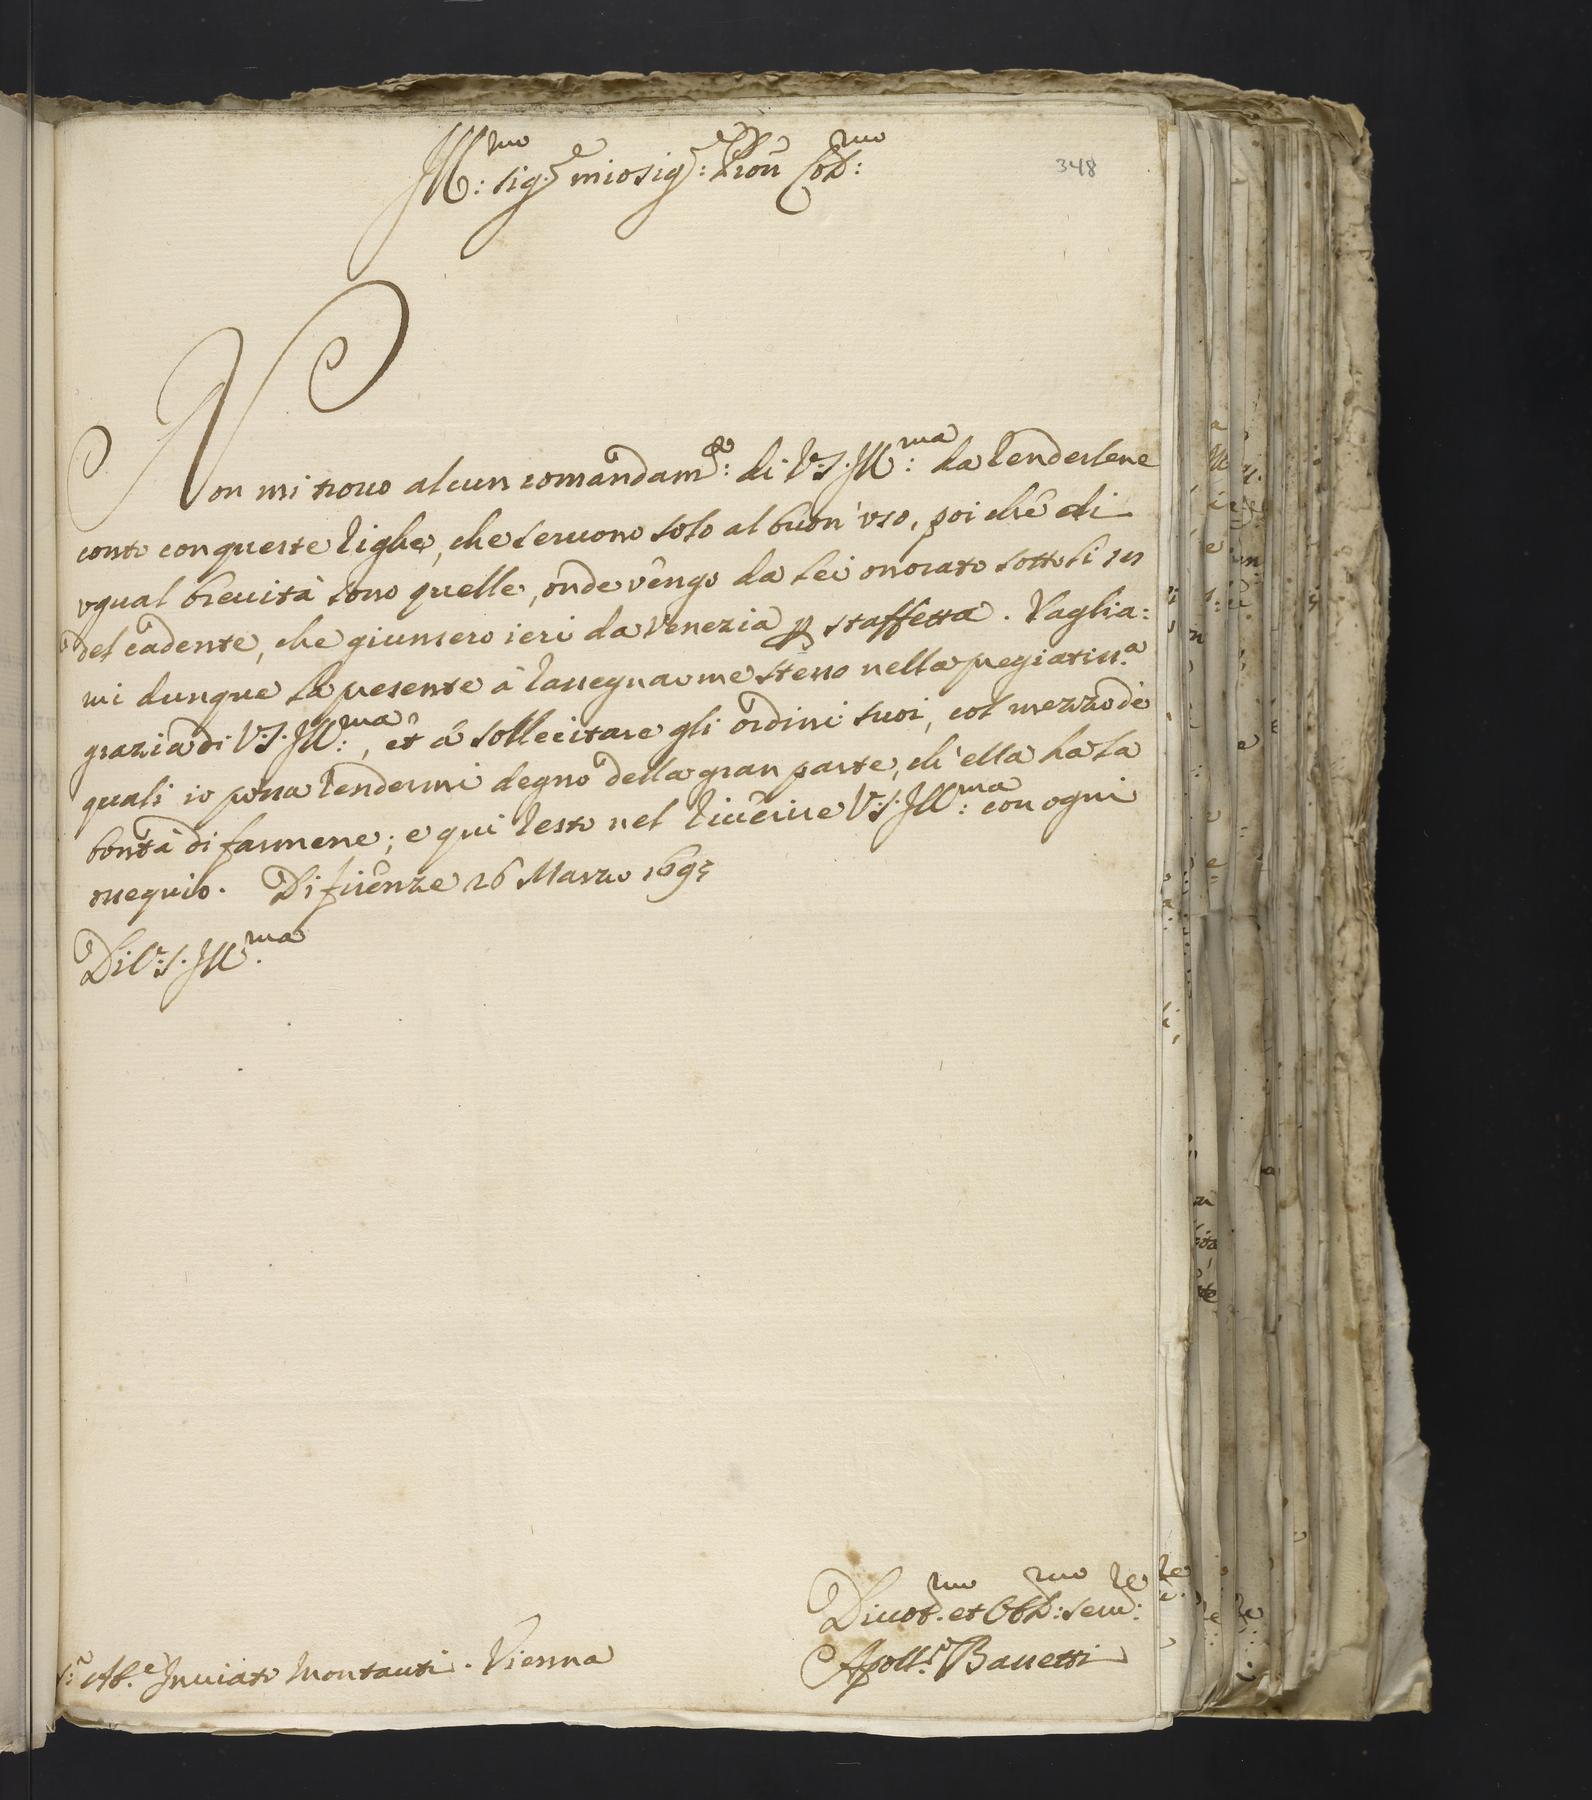 Ill:mo sig.re mio sig.re: Pron Col:mo
348
Non mi trovo alcun comandam:to di V.S. Ill:ma da renderlene
conto con queste righe, che servono solo al buon' uso, poi chè di
ugual brevità sono quelle, onde vengo da lei onorato sotto li
del cadente, che giunsero ieri da Venezia p staffetta. Vaglia:
mi dunque la presente à rassegnarme stesso nella pregiatiss.a
grazia di V.S. Ill:ma, et à sollecitare gli ordini suoi, col mezzo de
quali io possa rendermi degno della gran parte, ch' ella ha la
bontà di farmene; e qui resto nel riverire V.S. Ill:ma con ogni
ossequio. Di Firenze 26 Marzo 1695
Di V.S. Ill.ma
Divot.mo et Obb:mo serv:re
Apoll.o Bassetti
S.r Ab.e Inviato Montauti. Vienna